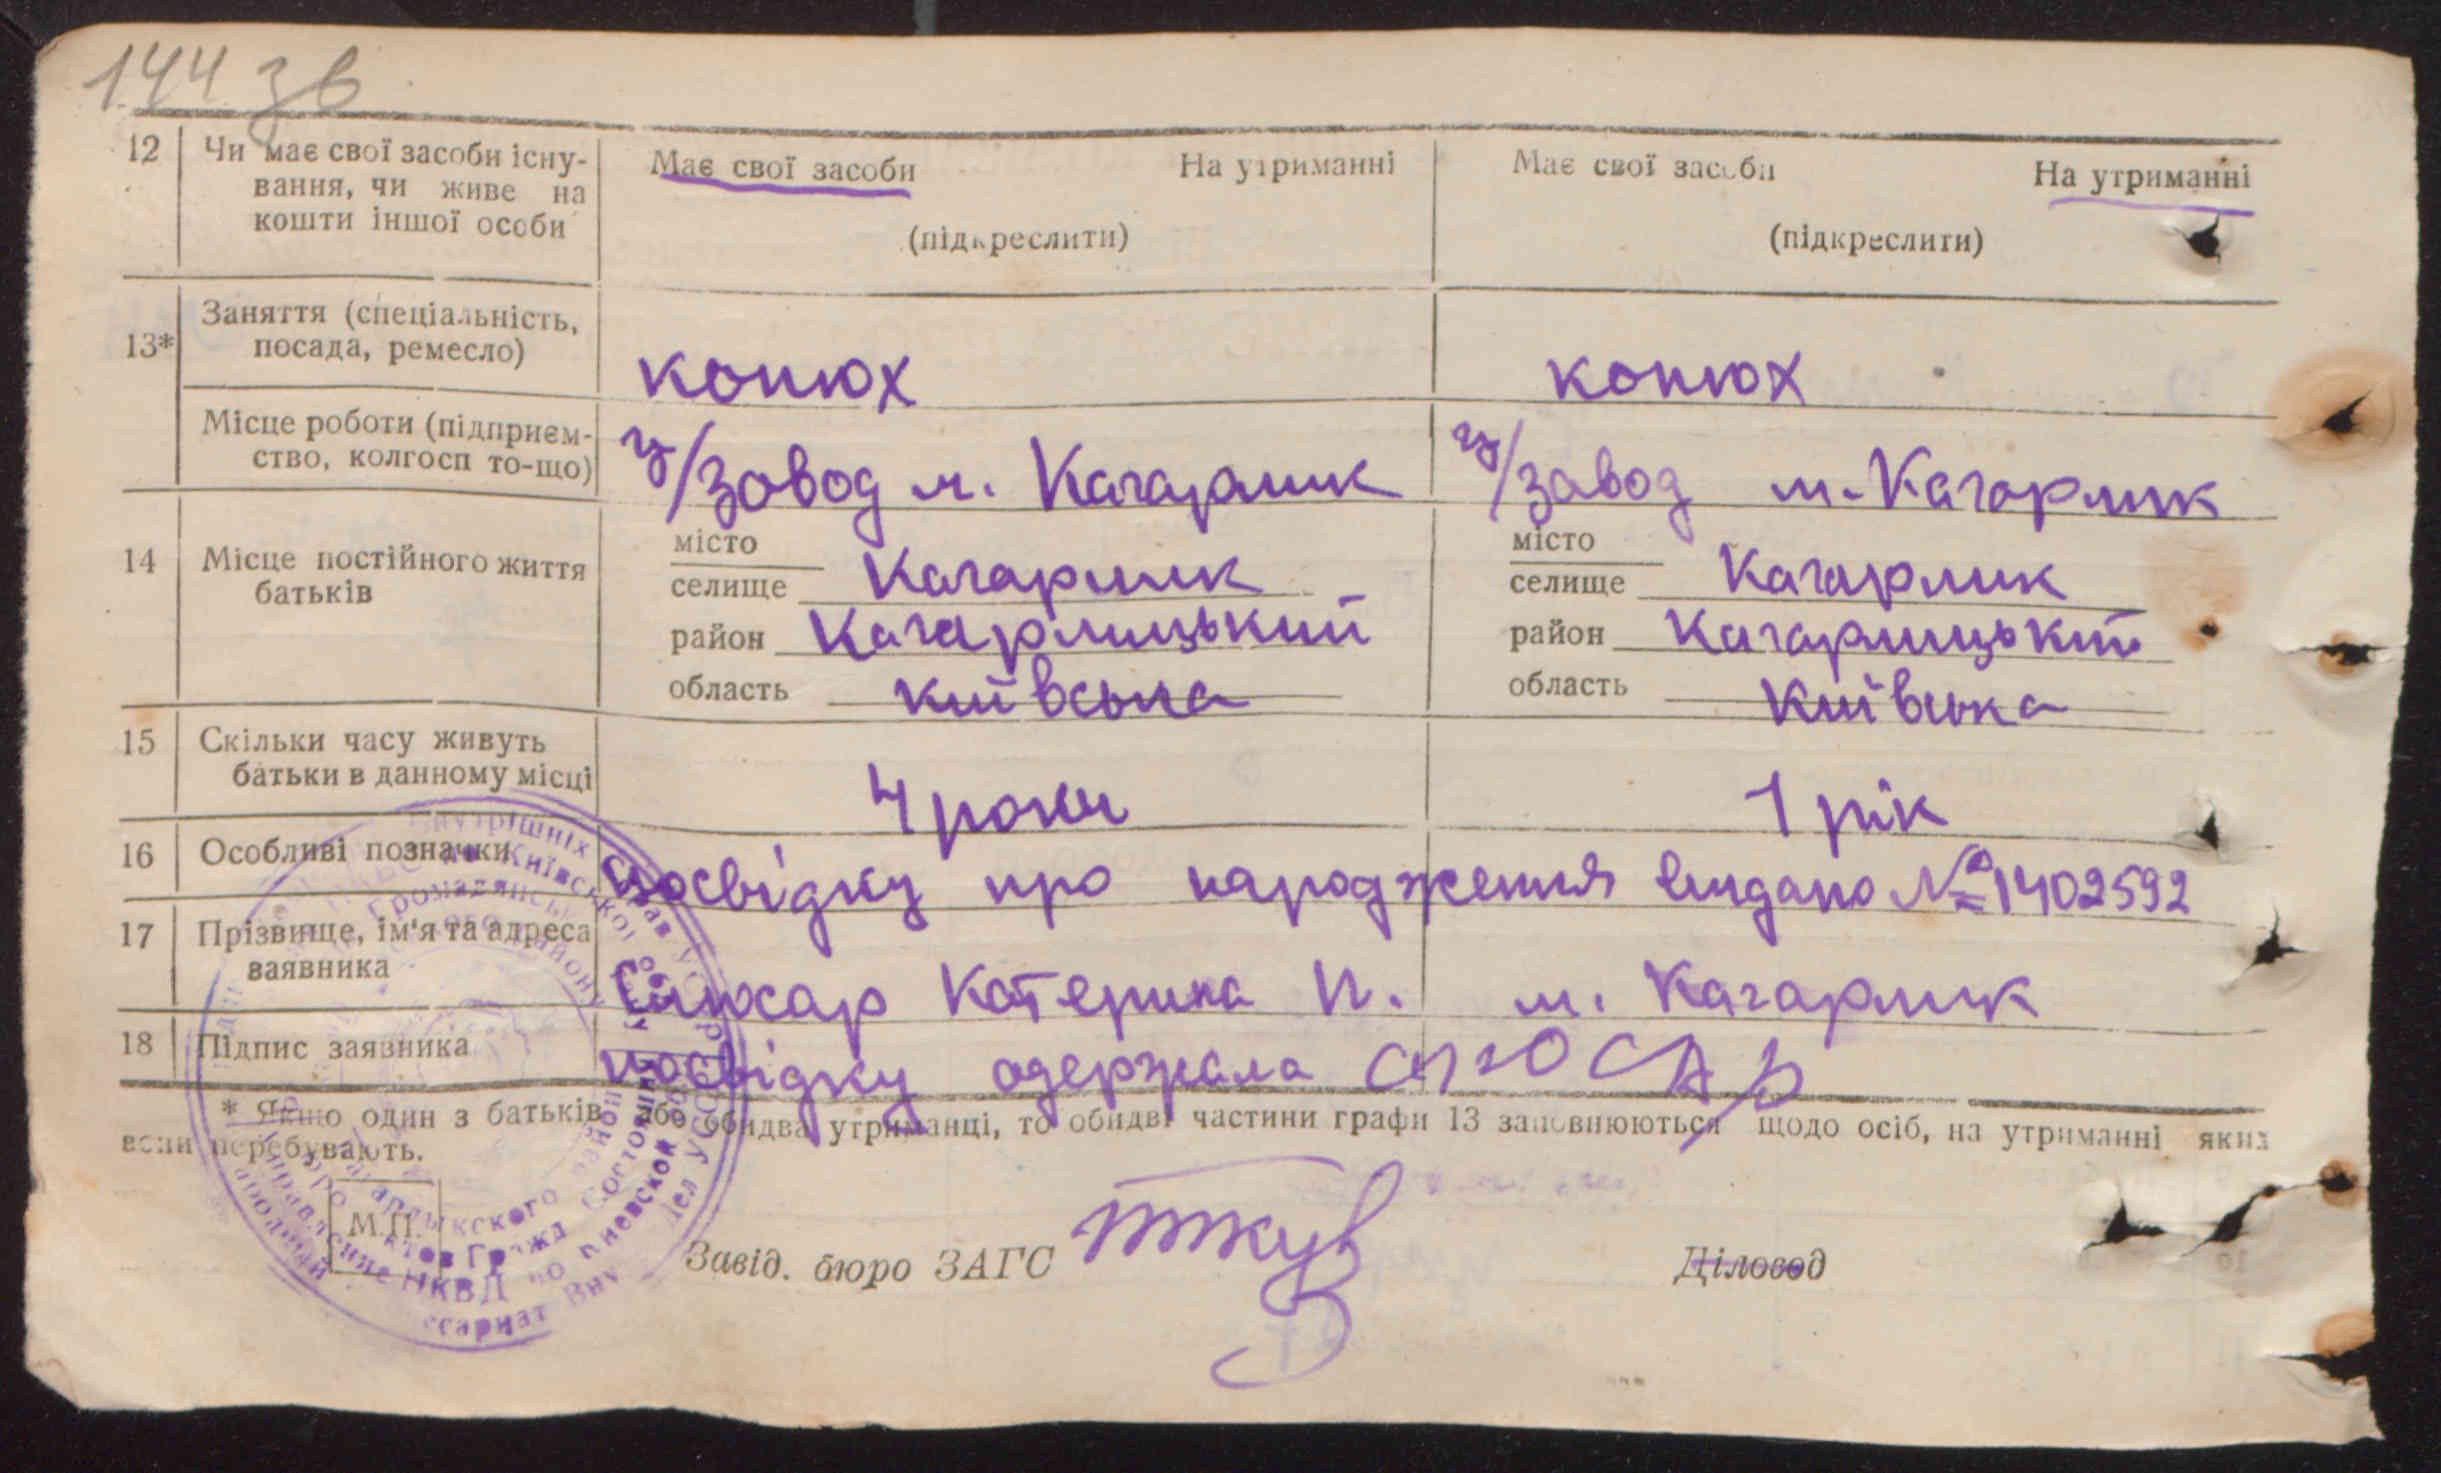 144 зв
12 Чи має свої засоби існу- Має свої засоби На утриманні Має свої засоби На утриманні
вання, чи живе на
кошти іншої особи (підкреслити) (підкреслити)
Заняття (спеціальність,
13* посада, ремесло) конюх конюх
Місце роботи (підприєм-
ство, колгосп то-що) ц/завод м. Кагарлик ц/завод м. Кагарлик
14 Місце постійного життя місто місто
батьків селище Кагарлик селище Кагарлик
район Кагарлицький район Кагарлицький
область київська область Київська
15 Скільки часу живуть
батьки в данному місці 4 роки 1 рік
16 Особливі позначки посвідку про народження видано № 1402592
17 Прізвище, ім'я та адреса
заявника Слюсар Катерина П. м. Кагарлик
18 Підпис заявника посвідку одержала СЛЮСАР
* Якщо один з батьків або обидва утриманці, то обидві частини графи 13 заповнюються щодо осіб, на утриманні яких
вони перебувають.
М.П.
Завід. бюро ЗАГС Діловод